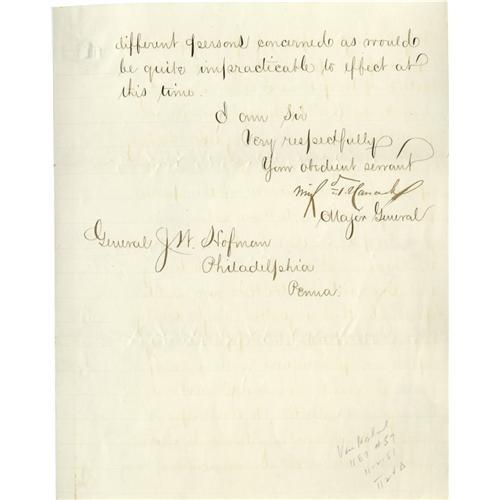 different persons concerned as would
be quite impracticable to effect at
this time.
I am Sir
Very respectfully
Your obedient servant
Winf S. Hancock
Major General
General J. W. Hofman
Philadelphia
Penna.